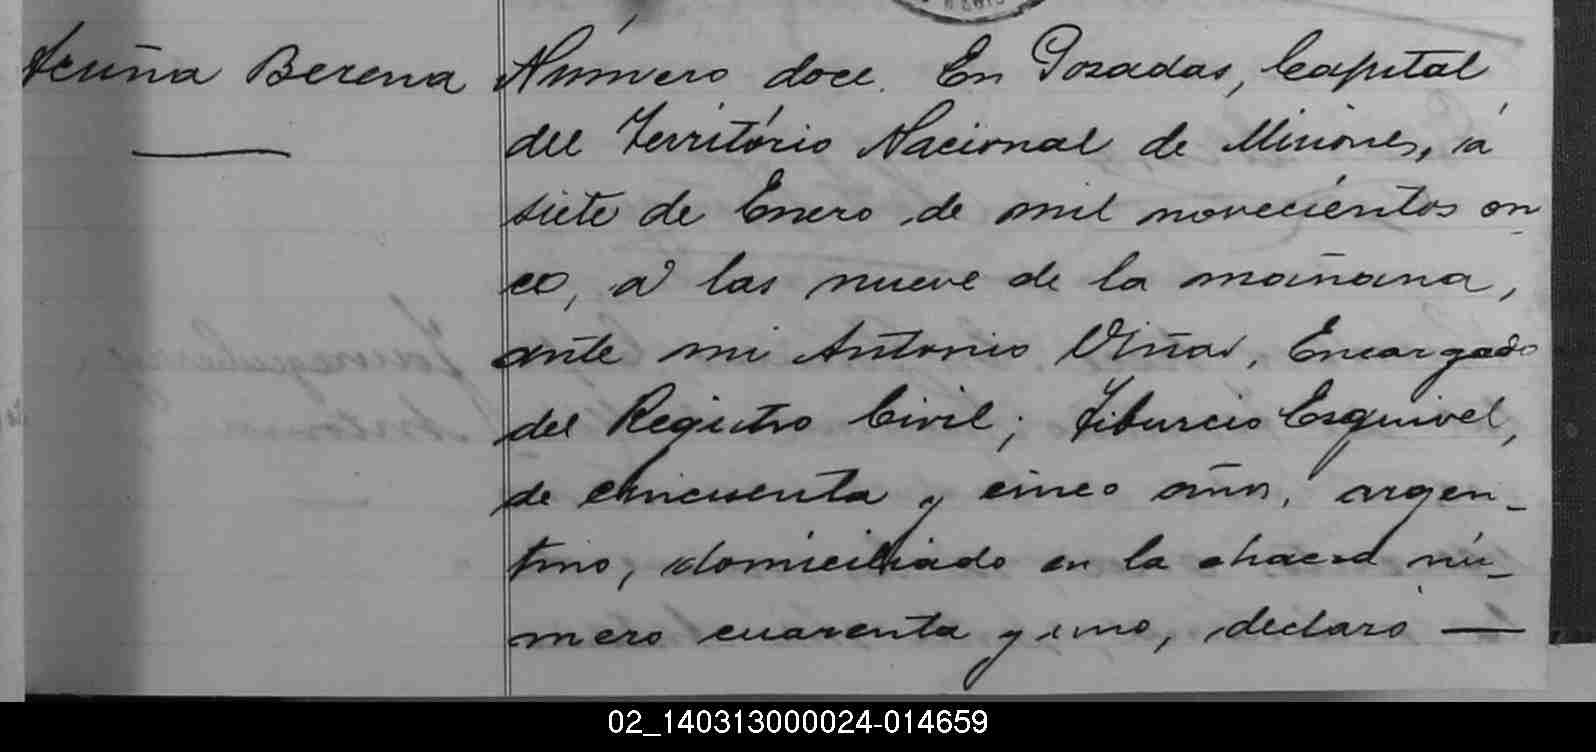 Acuña Berena
Número doce. En Posadas, Capital
del Território Nacional de Misiones, á
siete de Enero de mil novecientos on
ce, á las nueve de la mañana,
ante mi Antonio Viñas, Encargado
del Registro Civil; Tiburcio Esquivel,
de cincuenta y cinco años, argen-
tino, domiciliado en la chacra nú-
mero cuarenta y uno, declaró —
02_140313000024-014659